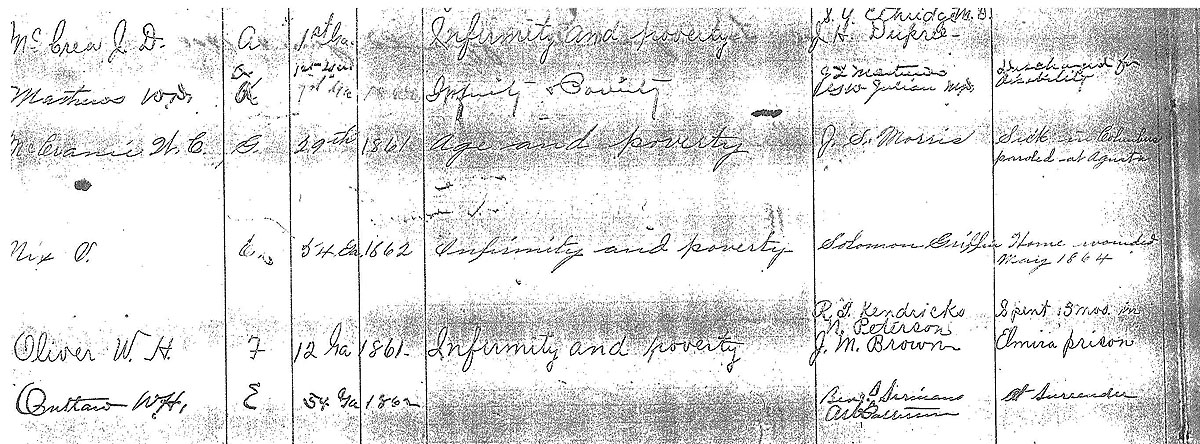 S. Y. Ethridge M.D.
McCrea J. D. A 1st Ga. Infirmity and poverty J. H. Dupree
1st Ga J. L. Mathews Discharged for
Mathews W. 1st Ga & Poverty Julian M.D. Disability
McCranie W. C. G. 29th 1861 Age and poverty J. S. Morris Sick in Columbus
paroled at Agusta
Nix O. E 54 Ga. 1862 Infirmity and poverty Solomon Griffin Home wounded
May 1864
R. T. Kendricks Spent 13 mos. in
N. Peterson
Oliver W. H. F 12 Ga 1861 Infirmity and poverty J. M. Brown Elmira prison
Outlaw W.H. E 54 Ga 1862 Benj. At Surrender